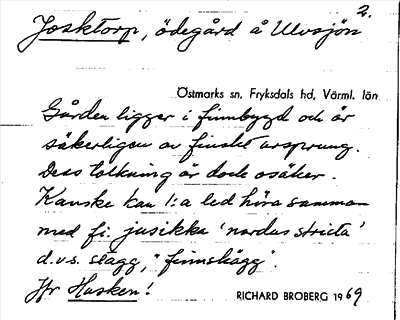 2.
Josktorp, ödegård å Ulvsjön
Östmarks sn, Fryksdals hd, Värml. län
Gården ligger i finnbygd och är
säkerligen av finskt ursprung.
Dess tolkning är dock osäker.
Kanske kan 1:a led höra samman
med fi. jusikka 'nardus stricta'
d.v.s. stagg, "finnskägg".
Jfr Husken!
RICHARD BROBERG 1969